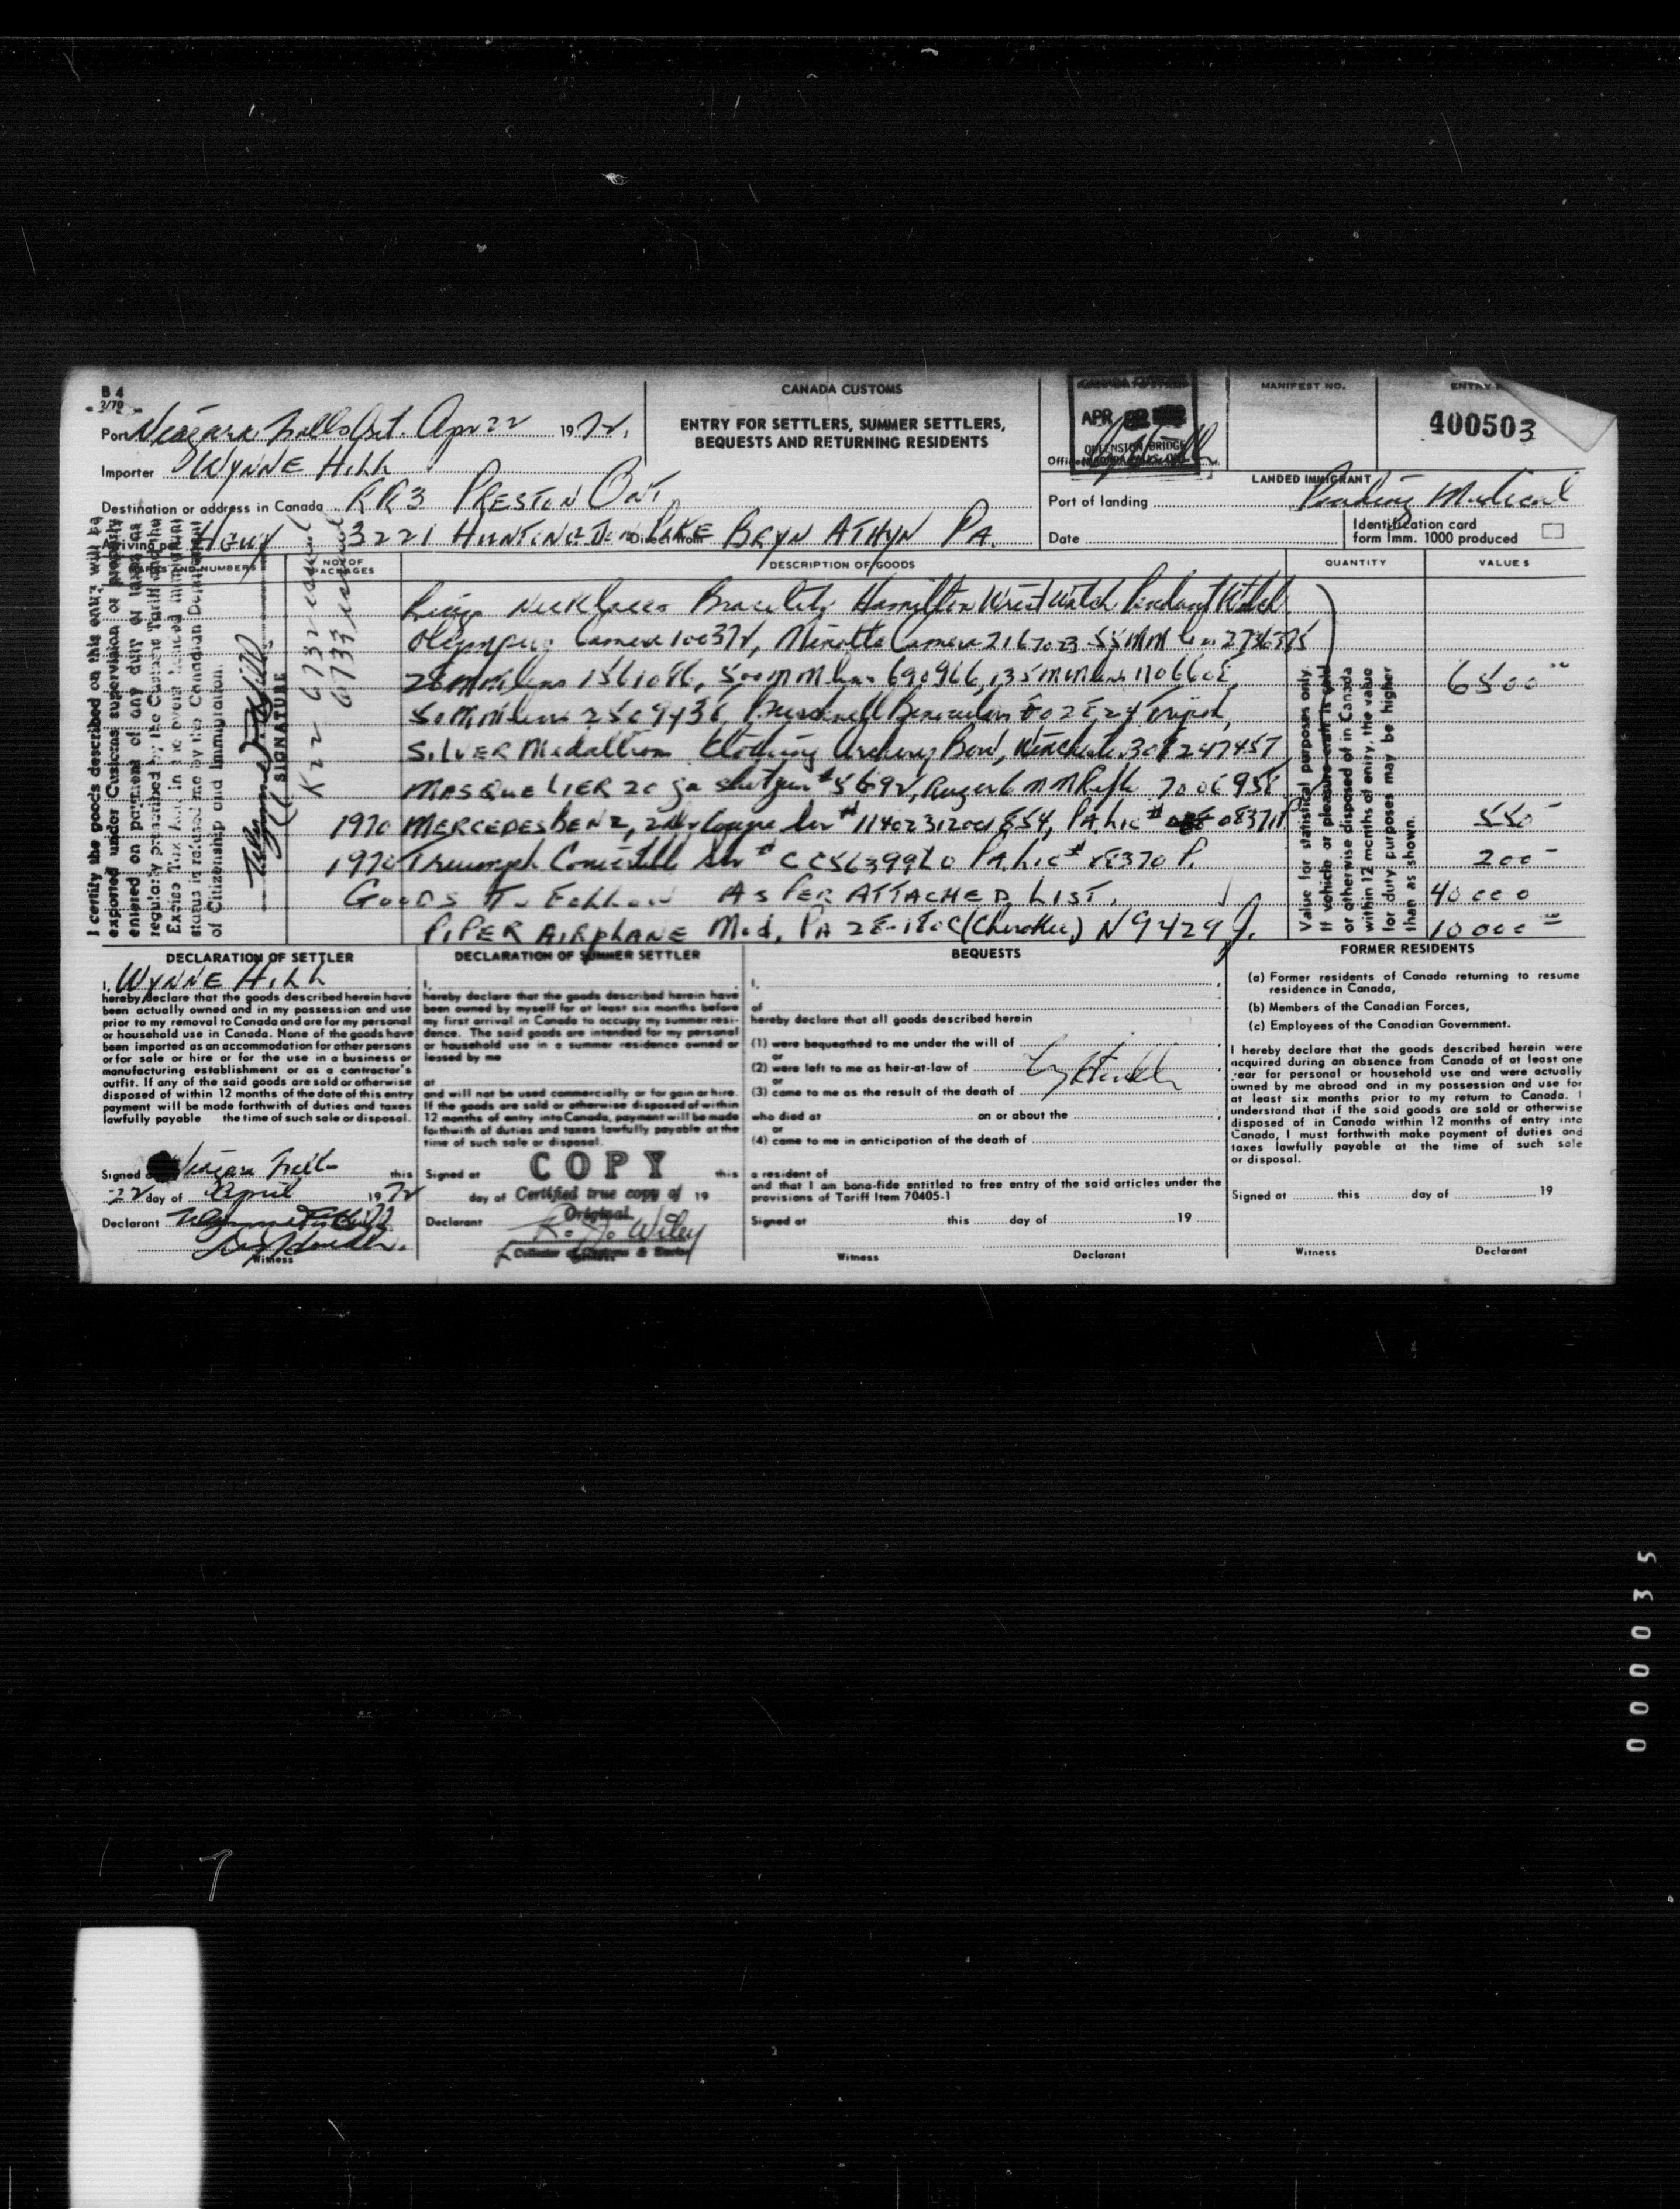 B 4
2/70
CANADA CUSTOMS
ENTRY FOR SETTLERS, SUMMER SETTLERS,
BEQUESTS AND RETURNING RESIDENTS
Port Niagara Falls Ont. Apr 22 1972.
CANADA CUSTOMS
APR 22
QUEENSTON BRIDGE
MANIFEST NO.
400503
Importer WYNNE HILL
LANDED IMMIGRANT
Destination or address in Canada RR3 PRESTON ONT.
Port of landing Pending Medical
Arriving per HGWY 3221 HUNTINGTON PIKE BRYN ATHYN PA.
Date
Identification card
form Imm. 1000 produced
MARKS AND NUMBERS
NO. OF PACKAGES
DESCRIPTION OF GOODS
QUANTITY
VALUE $
I certify the goods described on this entry will be
exported under Customs supervision or properly
entered on payment of any duty or taxes as
regularly prescribed by the Customs Tariff and the
Excise Tax Act in the event landed immigrant
status is refused me by the Canadian Department
of Citizenship and Immigration.
SIGNATURE
K22 6732 issued
6733 issued
Rings Necklaces Bracelets Hamilton Wrist Watch Pendant Watch
Olympus Camera 100372, Minolta Camera 2167023 55mm lens 2736375
28mm lens 1561086, 500mm lens 690966, 135mm lens 1106608,
50mm lens 2509436, Bushnell Binoculars Tripod,
SILVER Medallion Clothing Archery Bow, Winchester 308 247457
MASQUELIER 20 ga shotgun #5692, Ruger 6mm Rifle 7006958
6500
1970 MERCEDES BENZ, 2dr Coupe Ser # 11402312001854, PA Lic # 08371P
550
1970 Triumph Convertible Ser # CC56399LO PA Lic # 88370 P.
200
GOODS TO FOLLOW AS PER ATTACHED LIST.
40000
PIPER AIRPLANE Mod. PA 28-180C (Cherokee) N9429J.
10000
Value for statistical purposes only.
If vehicle or pleasure craft is sold
or otherwise disposed of in Canada
within 12 months of entry, the value
for duty purposes may be higher
than as shown.
DECLARATION OF SETTLER
I, WYNNE HILL
hereby declare that the goods described herein have
been actually owned and in my possession and use
prior to my removal to Canada and are for my personal
or household use in Canada. None of the goods have
been imported as an accommodation for other persons
or for sale or hire or for the use in a business or
manufacturing establishment or as a contractor's
outfit. If any of the said goods are sold or otherwise
disposed of within 12 months of the date of this entry
payment will be made forthwith of duties and taxes
lawfully payable the time of such sale or disposal.
Signed at Niagara Falls this
22 day of April 1972
Declarant
Witness
DECLARATION OF SUMMER SETTLER
I,
hereby declare that the goods described herein have
been owned by myself for at least six months before
my first arrival in Canada to occupy my summer resi-
dence. The said goods are intended for my personal
or household use in a summer residence owned or
leased by me
at
and will not be used commercially or for gain or hire.
If the goods are sold or otherwise disposed of within
12 months of entry into Canada, payment will be made
forthwith of duties and taxes lawfully payable at the
time of such sale or disposal.
Signed at COPY this
day of Certified true copy of 19
Original
Declarant R. J. Wiley
Collector of Customs & Excise
BEQUESTS
I,
of
hereby declare that all goods described herein
(1) were bequeathed to me under the will of
or
(2) were left to me as heir-at-law of
or
(3) came to me as the result of the death of
who died at on or about the
or
(4) came to me in anticipation of the death of
a resident of
and that I am bona-fide entitled to free entry of the said articles under the
provisions of Tariff Item 70405-1
Signed at this day of 19
Witness Declarant
FORMER RESIDENTS
(a) Former residents of Canada returning to resume
residence in Canada,
(b) Members of the Canadian Forces,
(c) Employees of the Canadian Government.
I hereby declare that the goods described herein were
acquired during an absence from Canada of at least one
year for personal or household use and were actually
owned by me abroad and in my possession and use for
at least six months prior to my return to Canada. I
understand that if the said goods are sold or otherwise
disposed of in Canada within 12 months of entry into
Canada, I must forthwith make payment of duties and
taxes lawfully payable at the time of such sale
or disposal.
Signed at this day of 19
Witness Declarant
000035